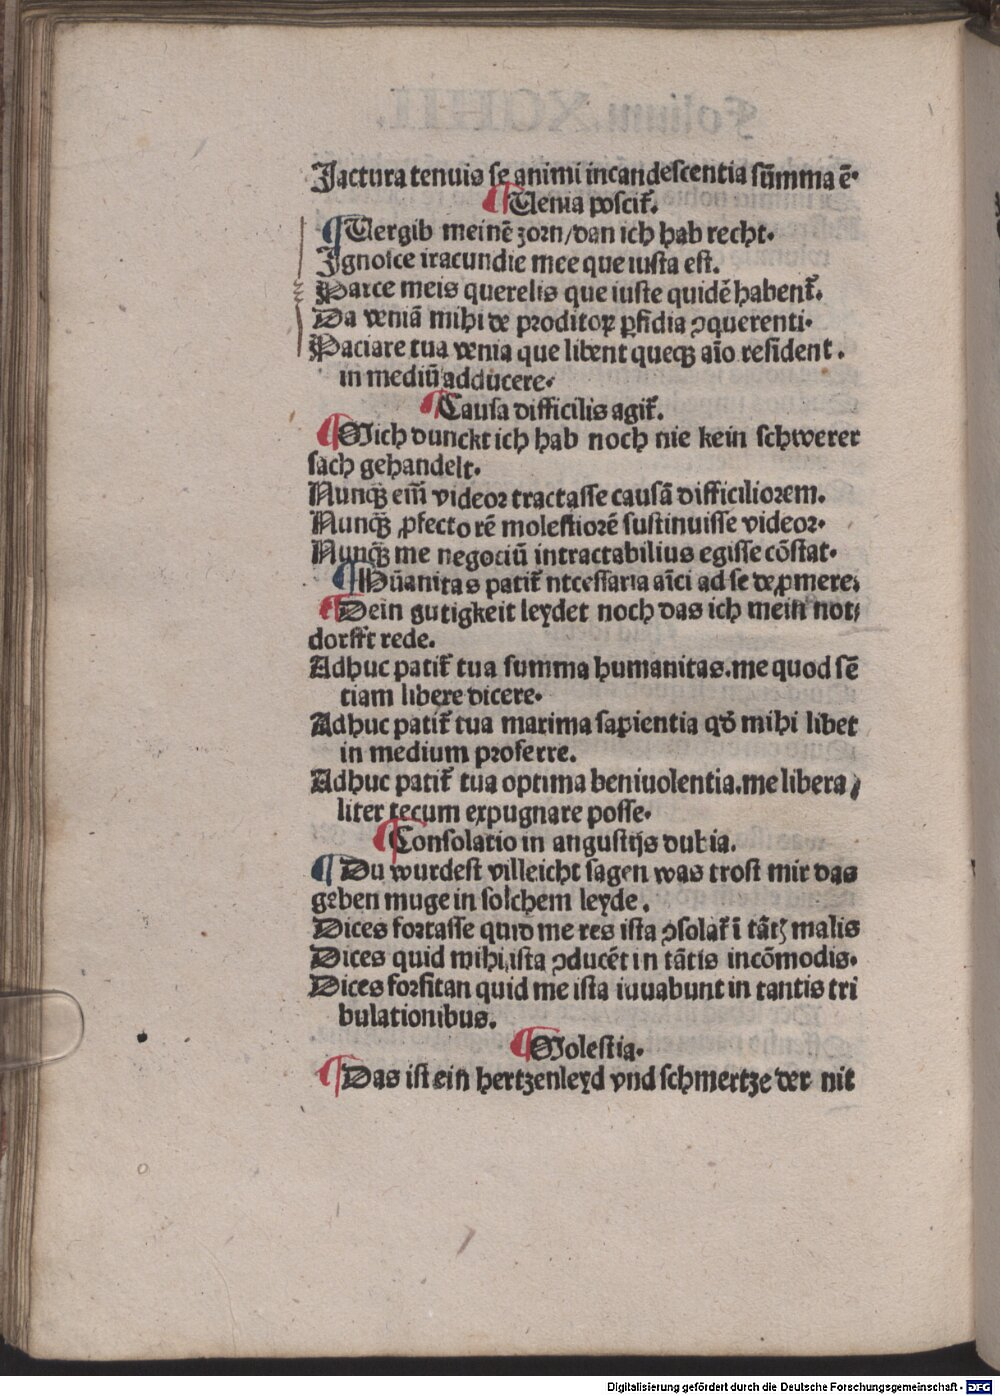 Jactura tenuis se animi incandescentia sūmma ē·
¶ Venia poscit᷑.
¶ Vergib meinē zorn/dan ich hab recht·
Jgnosce iracundie mee que iusta est.
Parce meis querelis que iuste quidē habent᷑.
Da veniā mihi de proditoꝝ ꝑfidia ꝯquerenti·
Paciare tua venia que libent quecꝫ aīo resident.
in mediū adducere·
¶ Causa difficilis agit᷑.
¶ Mich dunckt ich hab noch nie kein schwerer
sach gehandelt·
Nunqꝫ em̄ videor tractasse causā difficiliorem.
Nunqꝫ ꝓfecto rē molestiorē sustinuisse videor·
Nunqꝫ me negociū intractabilius egisse cōstat·
¶ Hūanitas patit᷑ ntcessaria aīci ad se deꝓmere.
¶ Dein gutigkeit leydet noch das ich mein not/
dorfft rede.
Adhuc patit᷑ tua summa humanitas.me quod sē
tiam libere dicere·
Adhuc patit᷑ tua maxima sapientia qd̄ mihi libet
in medium proferre.
Adhuc patit᷑ tua optima beniuolentia.me libera/
liter tecum expugnare posse·
¶ Consolatio in angustijs dubia.
¶ Du wurdest villeicht sagen was trost mir das
geben muge in solchem leyde.
Dices fortasse quid me res ista ꝯsolat᷑ ī tātꝭ malis
Dices quid mihi ista ꝯducēt in tātis incōmodis·
Dices forsitan quid me ista iuuabunt in tantis tri
bulationibus.
¶ Molestia·
¶ Das ist ein hertzenleyd vnd schmertze der nit
Digitalisierung gefördert durch die Deutsche Forschungsgemeinschaft - DFG